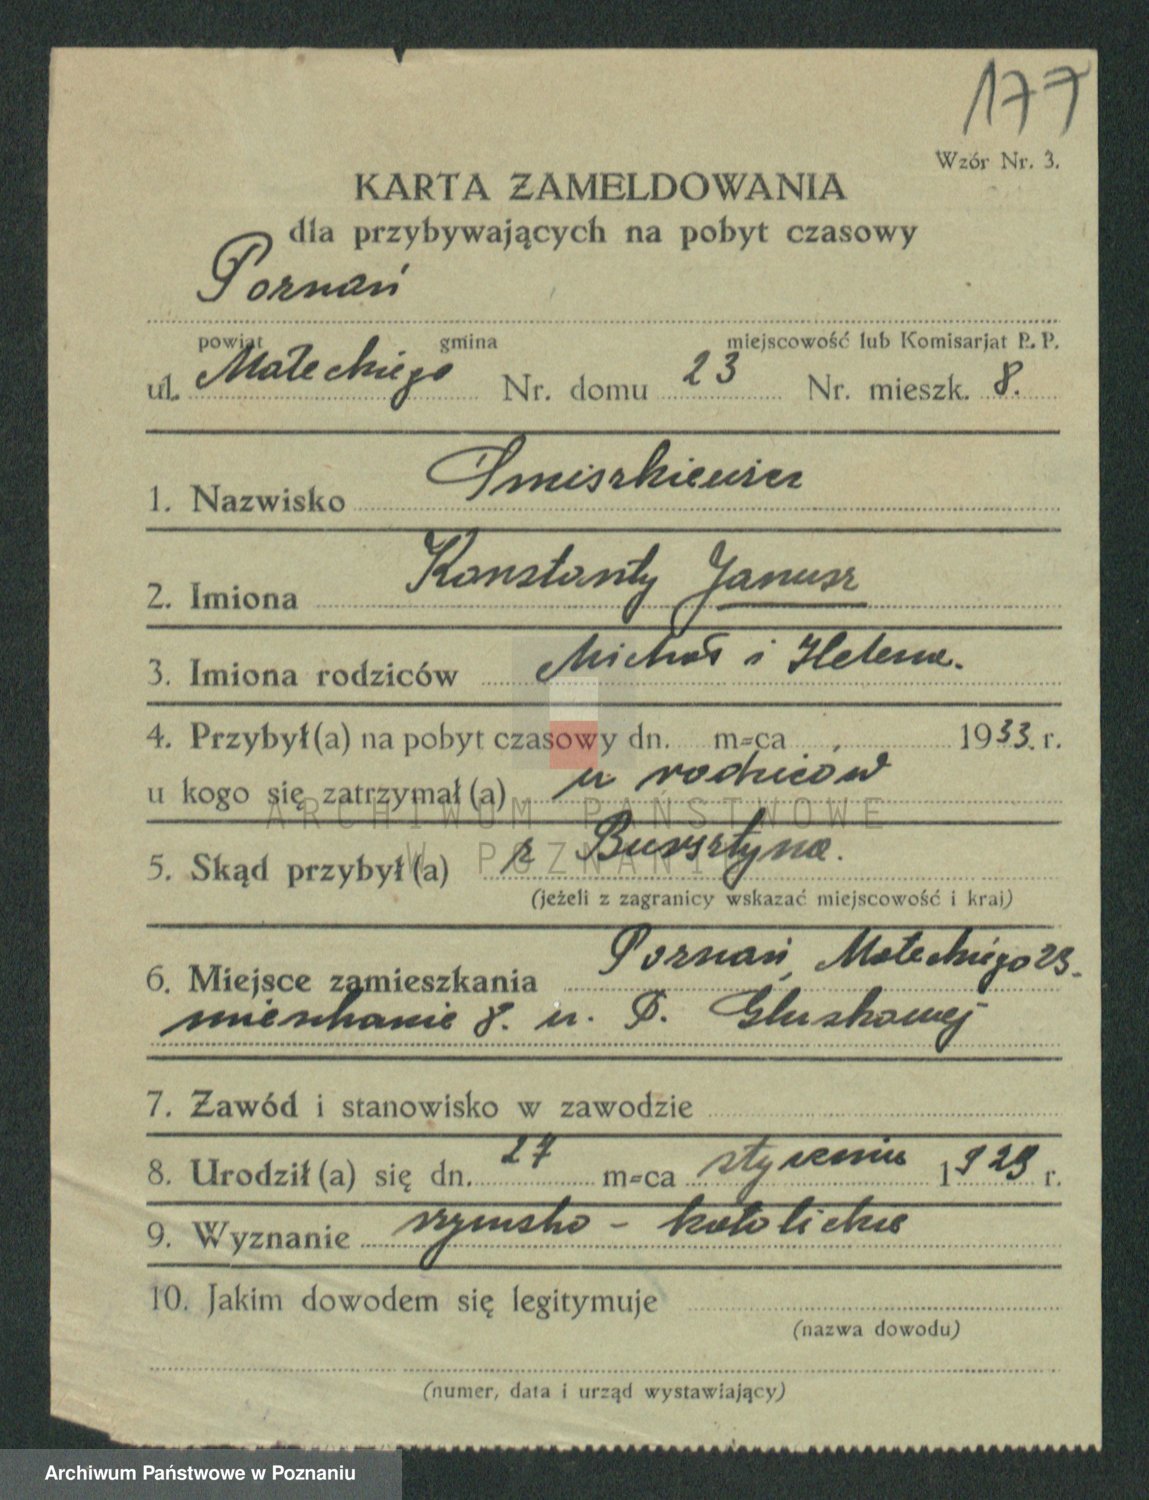 177
Wzór Nr. 3.
KARTA ZAMELDOWANIA
dla przybywających na pobyt czasowy
Poznań
powiat gmina miejscowość lub Komisarjat P. P.
ul. Małeckiego Nr. domu 23 Nr. mieszk. 8.
1. Nazwisko Śmiszkiewicz
2. Imiona Konstanty Janusz
3. Imiona rodziców Michał i Helena.
4. Przybył(a) na pobyt czasowy dn. m-ca 1933. r.
u kogo się zatrzymał(a) u rodziców
ARCHIWUM PAŃSTWOWE
W POZNANIU
5. Skąd przybył(a) z Bursztyna.
(jeżeli z zagranicy wskazać miejscowość i kraj)
6. Miejsce zamieszkania Poznań, Małeckiego 23.
mieszkanie 8. u. P. Głuszkowej
7. Zawód i stanowisko w zawodzie
8. Urodził(a) się dn. 27 m-ca stycznia 1929 r.
9. Wyznanie rzymsko - katolickie
10. Jakim dowodem się legitymuje
(nazwa dowodu)
(numer, data i urząd wystawiający)
Archiwum Państwowe w Poznaniu